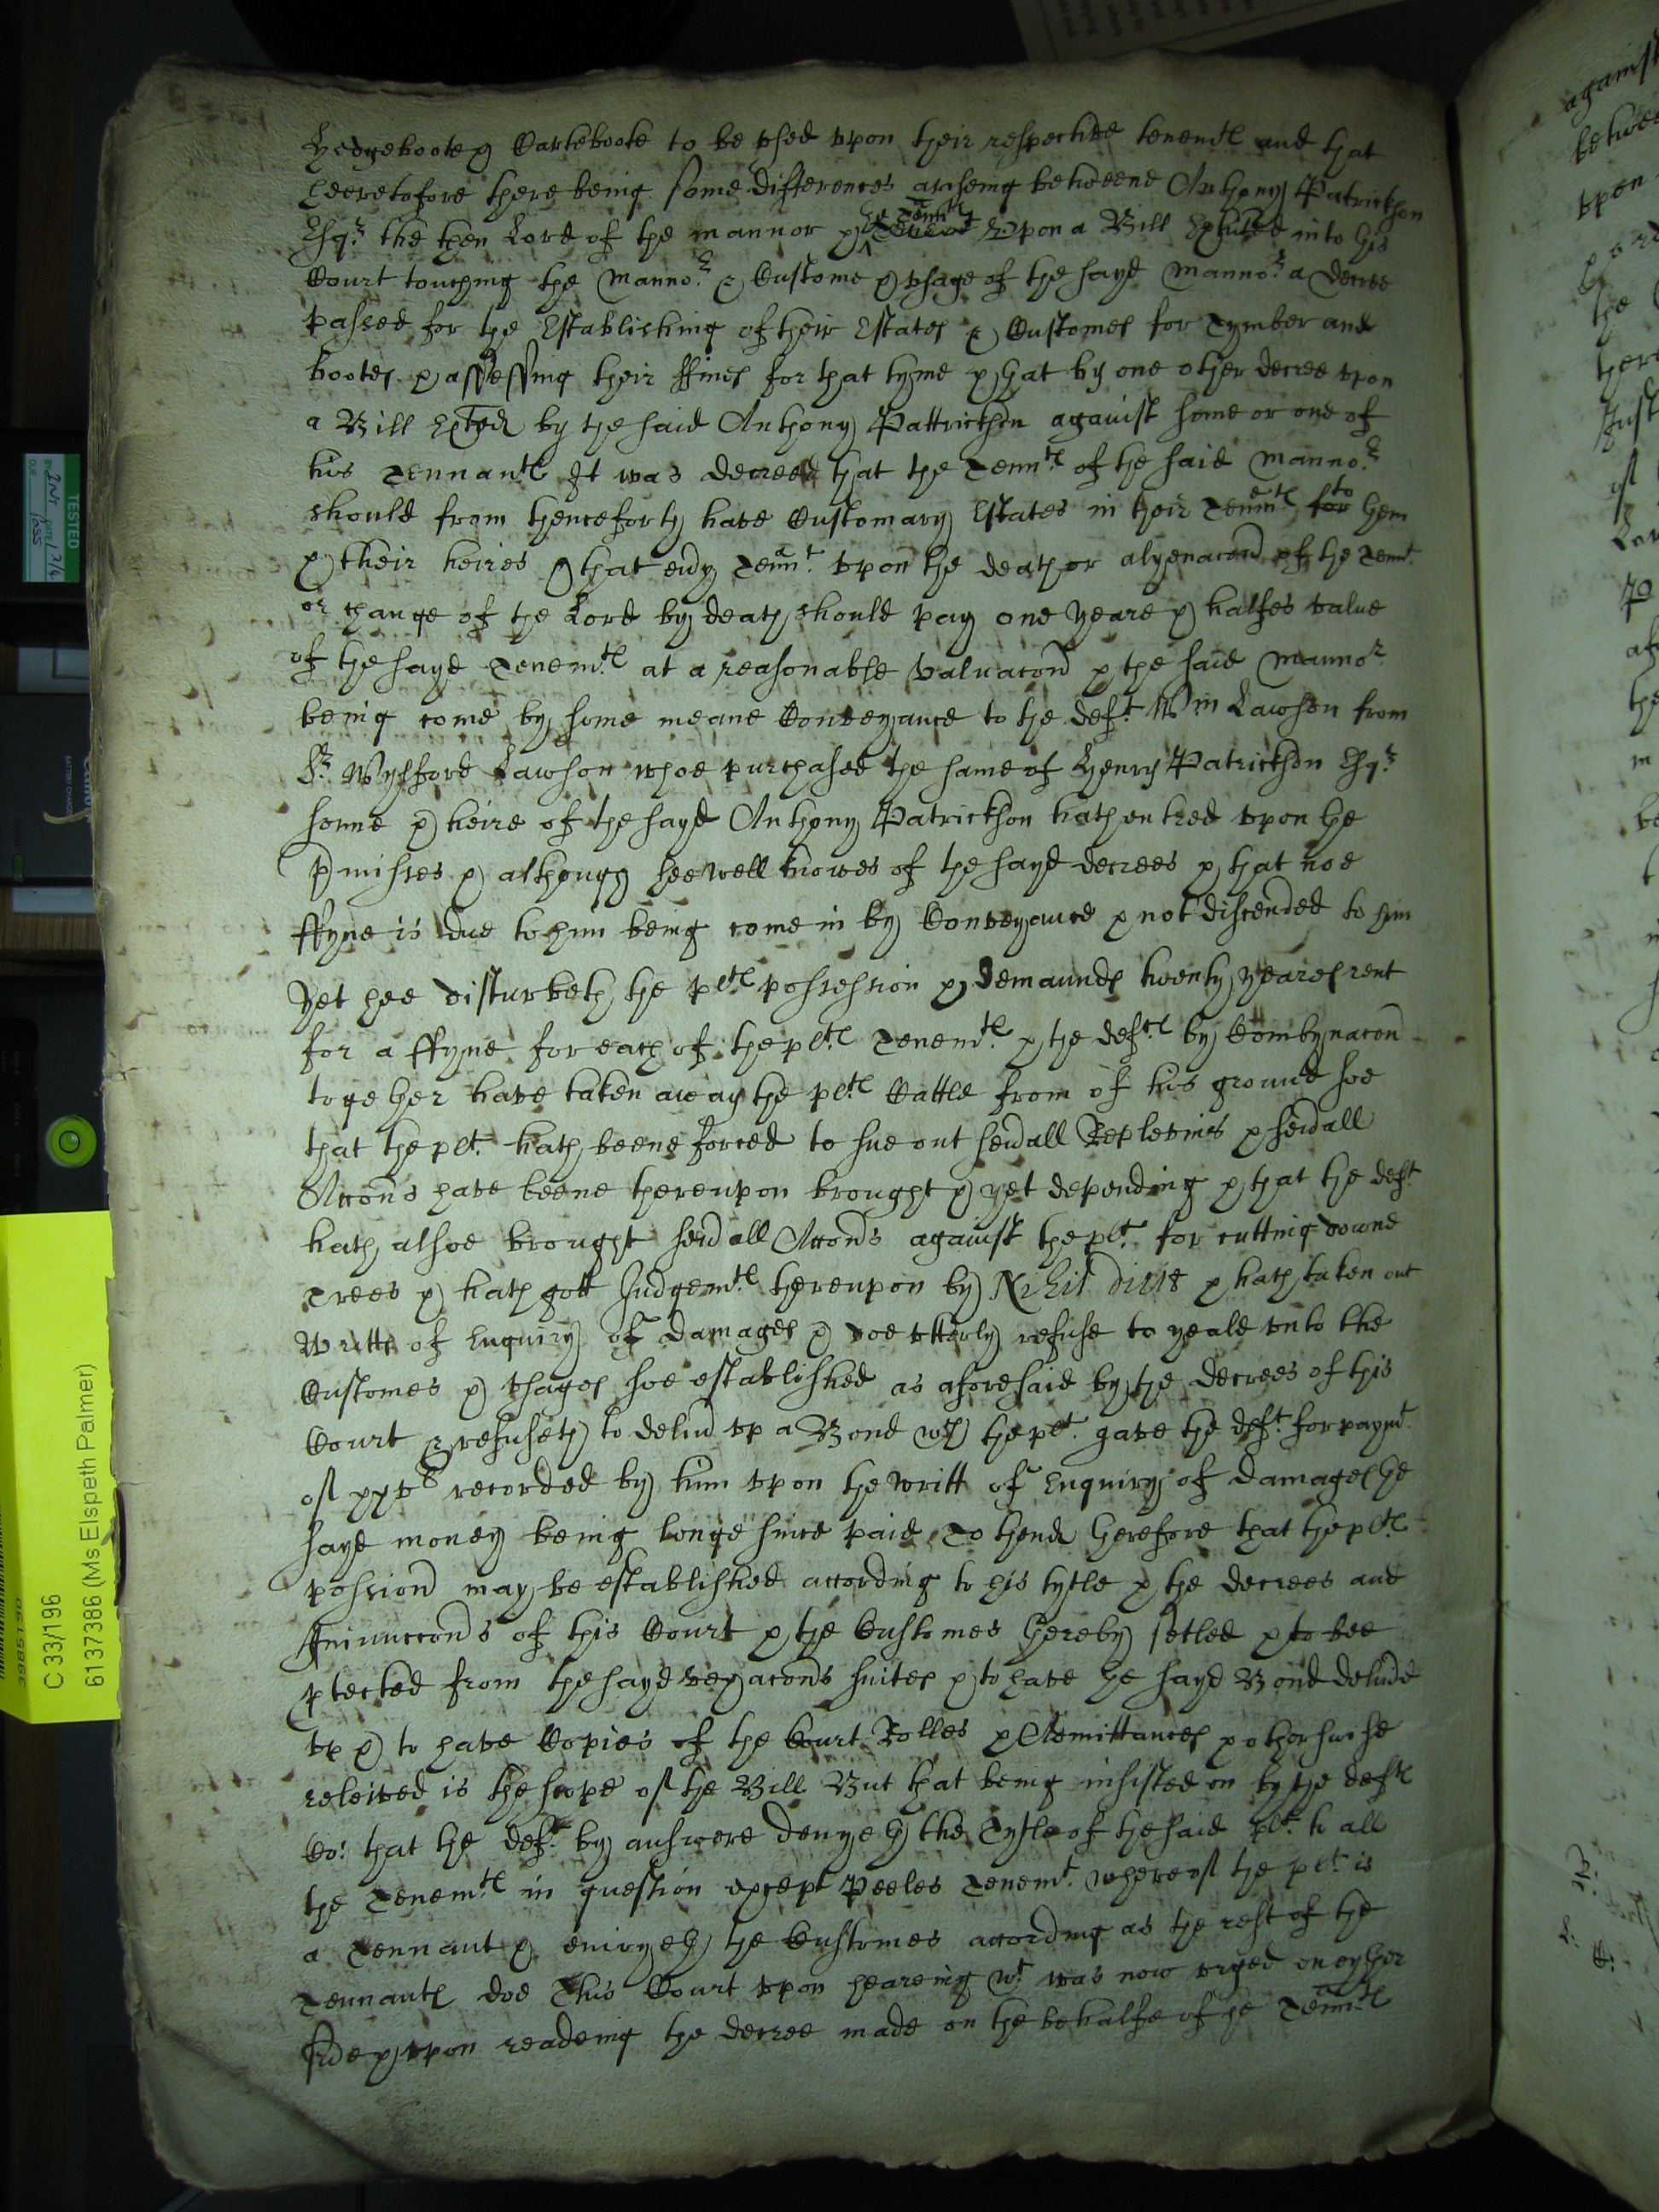 Hedgeboote & Carteboote to be vsed vpon their respective tenemtes and that
heeretofore there being some differences ariseing betweene Anthony Patrickson
Esqr. the then Lord of the mannor & the Tennts Vpon a Bill Exhited into this
Court touching the Mannor. & Custome & vsage of the sayd Mannor. a decree
passed for the Establishing of their Estates & Customes for Tymber and
bootes & assessing their ffines for that tyme & that by one other decree vpon
a Bill Exted by the said Anthony Pattrickson against some or one of
his Tennantes It was decreed that the Tennts of the said Mannor.
should from thenceforth have Customary Estates in their Tenemtes to them
& their heires & that euy Tennt. vpon the death or alyenacon of the Tennt.
or change of the Lord by death should pay one yeare & halfes value
of the sayd Tenemtes at a reasonable valuacon & the said Mannor.
being come by some meane Conveyance to the deft. Wm Lawson from
Sr. Wylfford Lawson whoe purchased the same of Henry Patrickson Esqr.
sonne & heire of the sayd Anthony Patrickson hath entred vpon the
pmisses & although hee well knowes of the sayd decrees & that noe
ffyne is due to him being come in by Conveyance & not discended to him
yet hee disturbeth the pltes possession & demaundes twenty yeares rent
for a ffyne for each of the pltes Tenemtes & the deftes by Combynacon
together have taken away the pltes Cattle from of his ground soe
that the plt. hath beene forced to sue out seuall Replevins & seuall
Accons have beene thereupon brought & yet depending & that the deft
hath alsoe brought seuall Accons against the plt. for cutting downe
Trees & hath gott Judgemtes thereupon by Nihil dicit & hath taken out
Writts of Enquiry of damages & doe vtterly refuse to yeald vnto the
Customes & vsages soe established as aforesaid by the decrees of this
Court & refuseth to deliu vp a Bond wch the plt. gave the deft. for paymt.
of xxvs recorded by him vpon the writt of Enquiry of damages the
sayd money being longe since paid To thend therefore that the pltes
possion may be established according to his tytle & the decrees and
Iniunccons of this Court & the Customes thereby setled & to bee
ptected from the sayd vexacons suites & to have the sayd Bond deliud
vp & to have Copies of the Court Rolles & Admittances & otherwise
releived is the scope of the Bill But that being insisted on by the deftes
Co: that the deft. by answere denyeth the Tytle of the said plt. to all
the Tenemtes in question except Peeles Tenemt. whereof the plt. is
a Tennant & enioyeth the Customes according as the rest of the
Tennantes doe This Court vpon heareing wt was now vrged on eyther
side & vpon readeing the decree made on the behalfe of the Tenntes
TESTED
C 33/196
6137386 (Ms Elspeth Palmer)
against
betwee
vpon